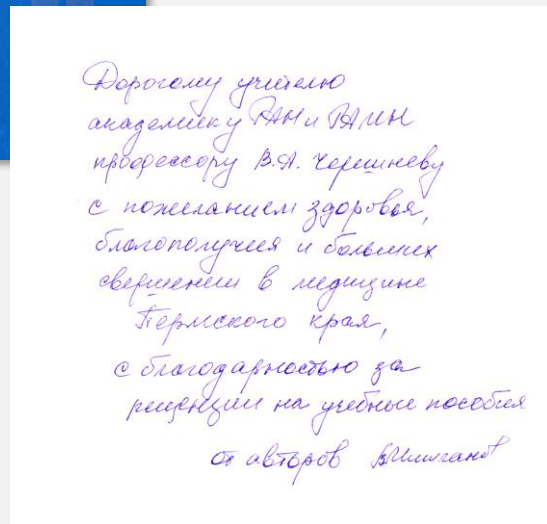 Дорогому учителю
академику РАН и РАМН
профессору В.А. Черешневу
с пожеланием здоровья,
благополучия и больших
свершений в медицине
Пермского края,
с благодарностью за
рецензии на учебные пособия
от авторов